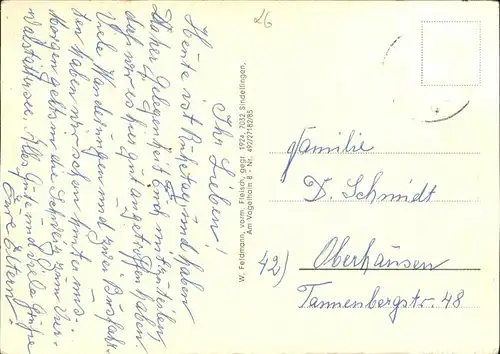 26
Ihr Lieben!
Heute ist Ruhetag und haben
daher Gelegenheit Euch mitzuteilen
daß wir es hier gut angetroffen haben
Viele Wanderungen und zwei Busfahr-
ten haben wir schon hinter uns.
Morgen gehts in die Schweiz zum Vier-
waldstättersee. Alles Gute und viele Grüße
Eure Eltern.
W. Feldmann, vorm. Fleisch, gegr. 1924, 7032 Sindelfingen,
Am Vogelhain 8 - Nr. 492/27182/85
Familie
D. Schmidt
42) Oberhausen
Tannenbergstr. 48